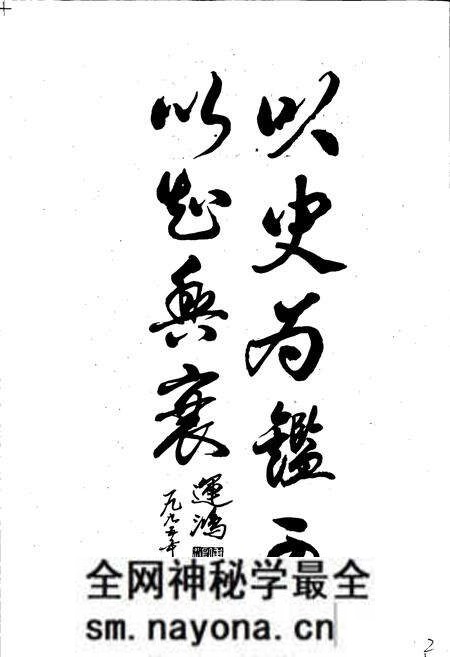 以史为鑑可
以知兴衰
運鴻
一九九五年
全网神秘学最全
sm.nayona.cn
2